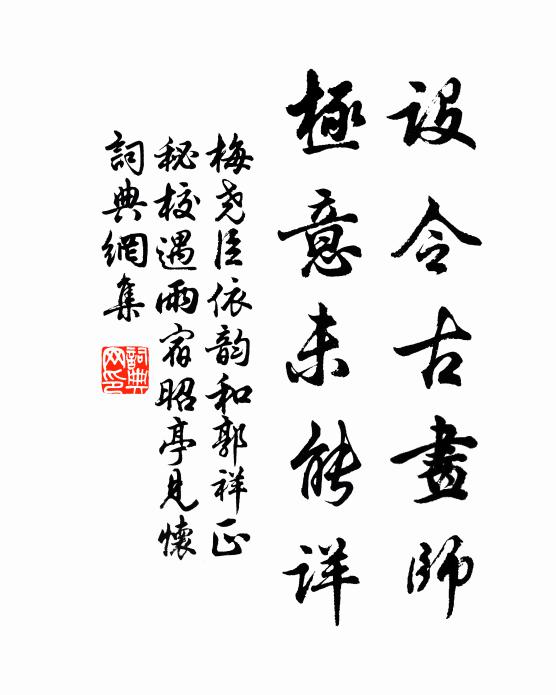 設令古畫師
極意未能詳
梅堯臣依韵和郭祥正
秘校遇雨宿昭亭見懷
詞典網集
詞典网印